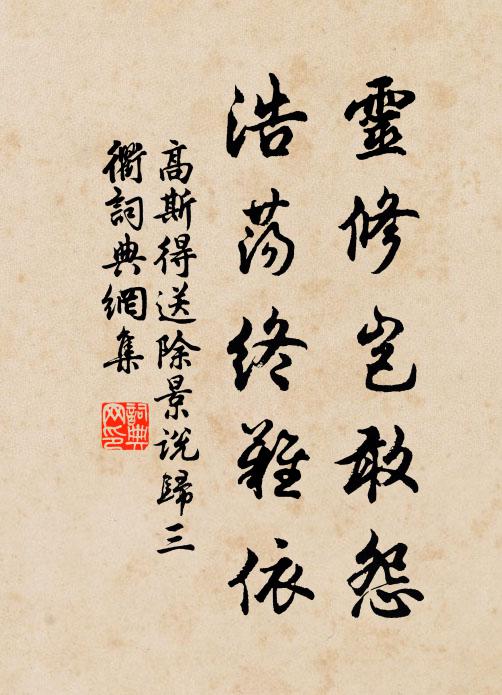 靈修岂敢怨
浩荡終難依
高斯得送除景说歸三
衢詞典網集
詞典网印